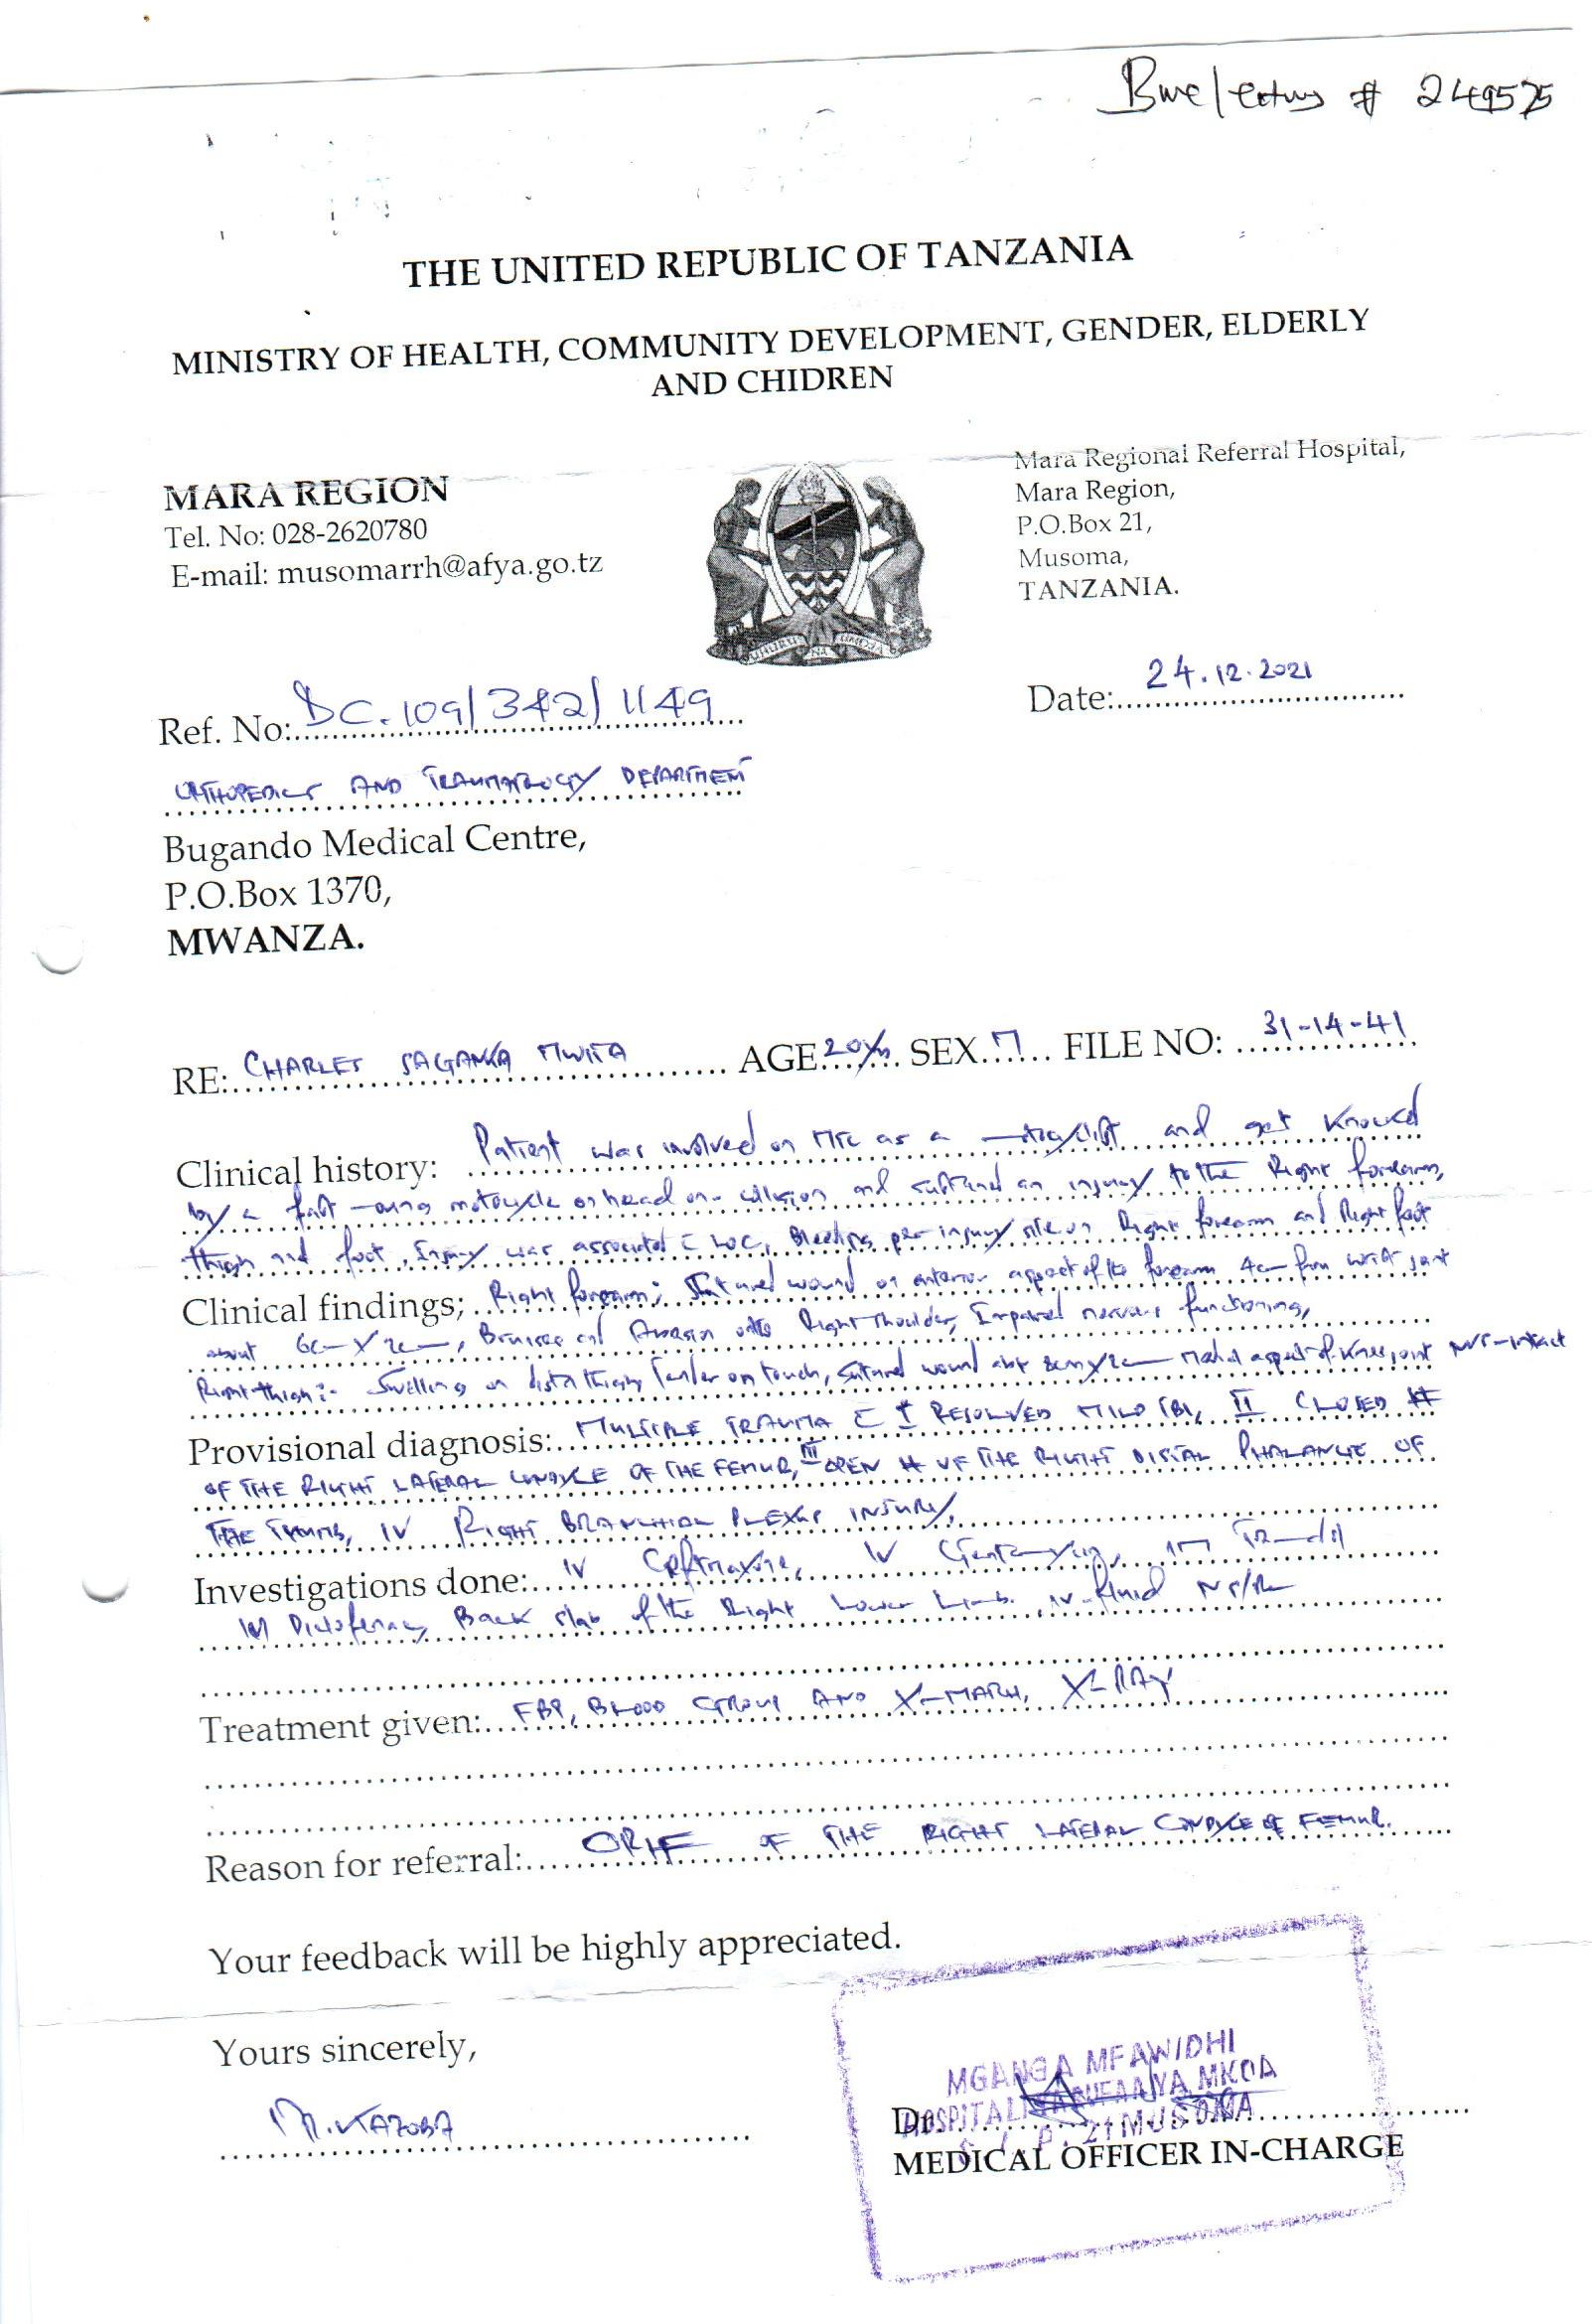 # 249575
THE UNITED REPUBLIC OF TANZANIA
MINISTRY OF HEALTH, COMMUNITY DEVELOPMENT, GENDER, ELDERLY
AND CHIDREN
MARA REGION
Tel. No: 028-2620780
E-mail: musomarrh@afya.go.tz
UHURU NA UMOJA
Mara Regional Referral Hospital,
Mara Region,
P.O.Box 21,
Musoma,
TANZANIA.
Ref. No: DC.109/342/1149
Date: 24.12.2021
ORTHOPEDICS AND TRAUMATOLOGY DEPARTMENT
Bugando Medical Centre,
P.O.Box 1370,
MWANZA.
RE: CHARLES SAGANKA MWITA AGE 20Yrs SEX M FILE NO: 31-14-41
Clinical history: Patient was involved on MTC as a and got knocked
by a fast motorcycle on head on collision and sustained an injury to the Right forearm,
thigh and foot, Injury was associated c LOC, Bleeding per injury site on Right forearm and Right foot
Clinical findings; Right forearm; Sutured wound on anterior aspect of the forearm 4cm from wrist joint
about 6cm X 2cm, Bruises and Abrasion onto Right shoulder, Impaired nervous functioning,
Right thigh:- Swelling on distal thigh, tender on touch, sutured wound abt 2cm Medial aspect of knee joint NVS-intact
Provisional diagnosis: MULTIPLE TRAUMA C I RESOLVED MILD TBI, II CLOSED #
OF THE RIGHT LATERAL CONDYLE OF THE FEMUR, III OPEN # OF THE RIGHT DISTAL PHALANGE OF
THE THUMB, IV RIGHT BRANCHIAL PLEXUS INJURY,
Investigations done: IV Ceftriaxone, IV Gentamycin, IM Tramadol
IM Diclofenac, Back slab of the Right Lower Limb, IV-fluid NS/RL
Treatment given: FBP, BLOOD GROUP AND X-MATCH, X-RAY
Reason for referral: ORIF OF THE RIGHT LATERAL CONDYLE OF FEMUR.
Your feedback will be highly appreciated.
Yours sincerely,
M. KAZOBA
MGANGA MFAWIDHI
HOSPITALI YA RUFAA YA MKOA
S.L.P. 21 MUSOMA
Dr.
MEDICAL OFFICER IN-CHARGE